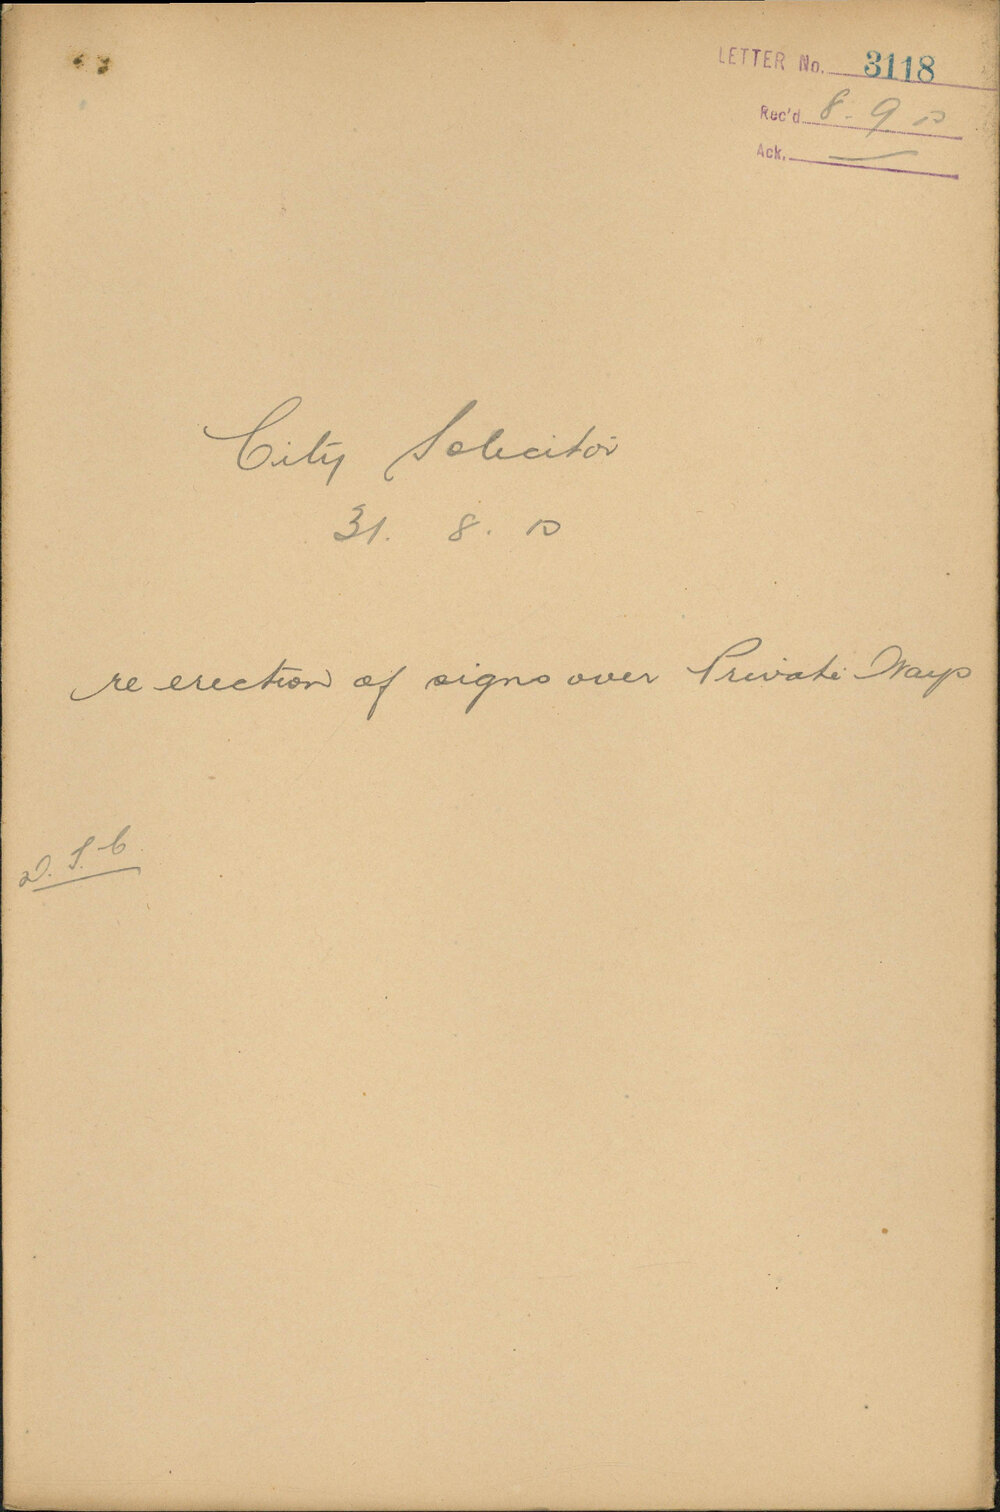 LETTER No. 3118
Rec'd 8-9.10
Ack.
City Solicitor
31. 8. 10
re erection of signs over Private Ways